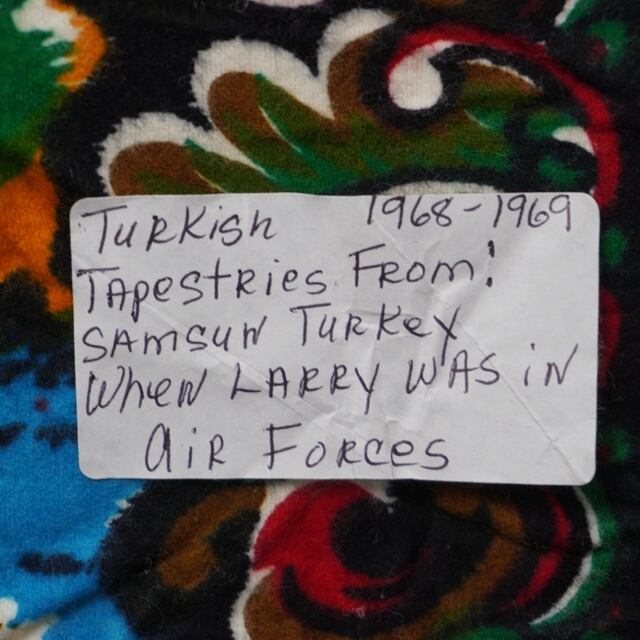 Turkish 1968-1969
Tapestries From!
Samsun Turkey
When Larry was in
Air Forces